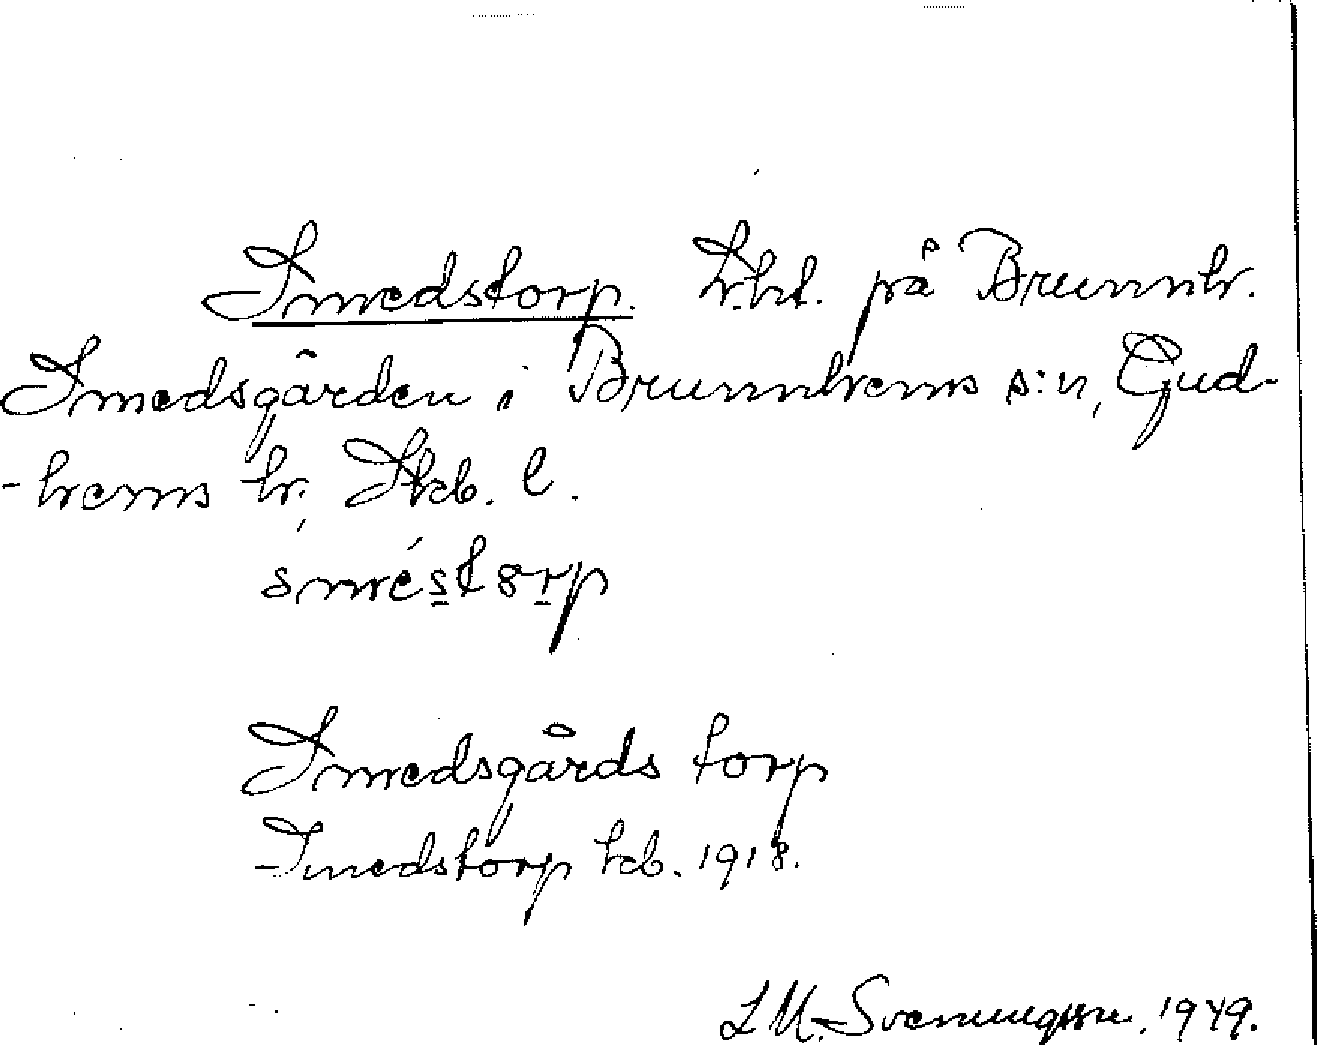 Smedstorp. Lht. på Brunnh.
Smedsgården i Brunnhems s:n, Gud-
-hems hr, Skb. l.
smés̲t8r̲p
Smedsgårds torp
Smedstorp kb. 1918.
L M. Svenungsson. 1949.